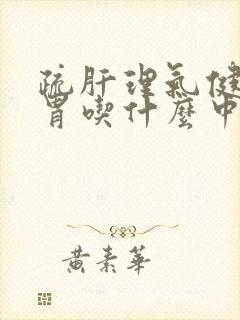 疏肝理氣健
胃喫什麼中
黃素華